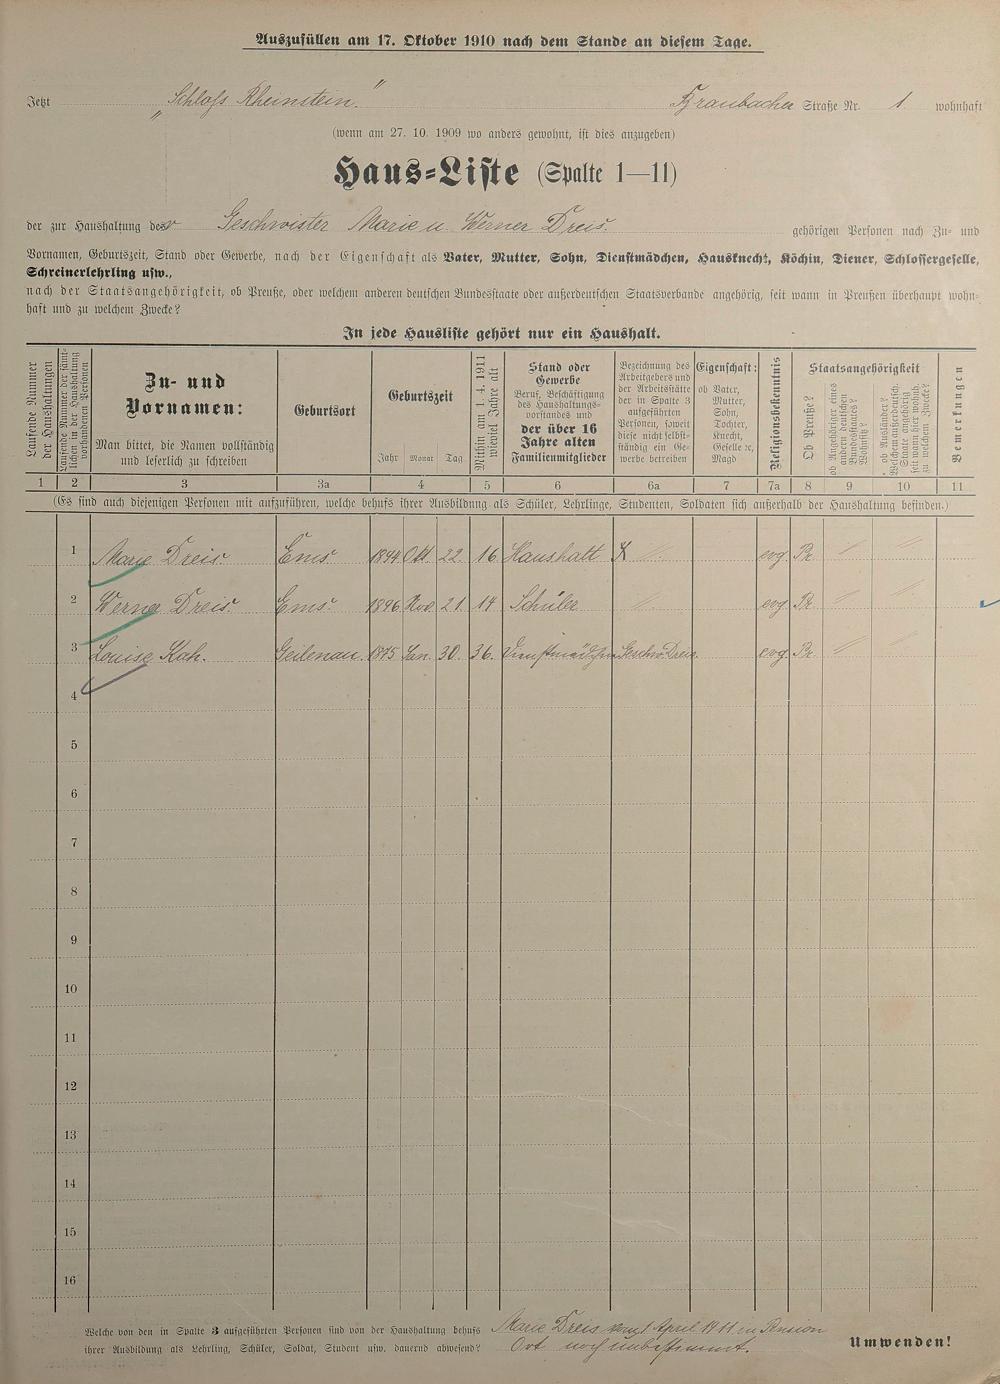 Auszufüllen am 17. Oktober 1910 nach dem Stande an diesem Tage.
Jetzt „Schloss Rheinstein." Braubacher Straße Nr. 1 wohnhaft
(wenn am 27. 10. 1909 wo anders gewohnt, ist dies anzugeben)
Haus-Liste (Spalte 1—11)
der zur Haushaltung der Geschwister Marie u. Werner Dreis. gehörigen Personen nach Zu- und
Vornamen, Geburtszeit, Stand oder Gewerbe, nach der Eigenschaft als Vater, Mutter, Sohn, Dienstmädchen, Hausknecht, Köchin, Diener, Schlossergeselle,
Schreinerlehrling usw.,
nach der Staatsangehörigkeit, ob Preuße, oder welchem anderen deutschen Bundesstaate oder außerdeutschen Staatsverbande angehörig, seit wann in Preußen überhaupt wohn-
haft und zu welchem Zwecke?
In jede Hausliste gehört nur ein Haushalt.
Laufende Nummer
der Haushaltungen
Laufende Nummer der sämt-
lichen in der Haushaltung
vorhandenen Personen
Zu- und
Vornamen:
Man bittet, die Namen vollständig
und leserlich zu schreiben
Geburtsort
Geburtszeit
Jahr Monat Tag
Mithin am 1. 4. 1911
wieviel Jahre alt
Stand oder
Gewerbe
Beruf, Beschäftigung
des Haushaltungs-
vorstandes und
der über 16
Jahre alten
Familienmitglieder
Bezeichnung des
Arbeitgebers und
der Arbeitsstätte
der in Spalte 3
aufgeführten
Personen, soweit
diese nicht selbst-
ständig ein Ge-
werbe betreiben
Eigenschaft:
ob Vater,
Mutter,
Sohn,
Tochter,
Knecht,
Geselle ꝛc,
Magd
Religionsbekenntnis
Staatsangehörigkeit
Ob Preuße?
ob Angehöriger eines
andern deutschen
Bundesstaates?
Wohnsitz?
ob Ausländer?
Welchem außerdeutsch.
Staate angehörig
seit wann hier wohnh.
zu welchem Zwecke?
Bemerkungen
1 2 3 3a 4 5 6 6a 7 7a 8 9 10 11
(Es sind auch diejenigen Personen mit aufzuführen, welche behufs ihrer Ausbildung als Schüler, Lehrlinge, Studenten, Soldaten sich außerhalb der Haushaltung befinden.)
1 Marie Dreis. Ems. 1894 Okt. 22. 16 Haushalt evg. Pr.
2 Werner Dreis. Ems. 1896 Nov. 21. 14 Schüler evg. Pr.
3 Louise Kah. Geilenau. 1875 Jan. 30. 36. Dienstmädchen Geschw. Dreis. evg. Pr.
4
5
6
7
8
9
10
11
12
13
14
15
16
Welche von den in Spalte 3 aufgeführten Personen sind von der Haushaltung behufs Marie Dreis vom 1 April 1911 in Pension
ihrer Ausbildung als Lehrling, Schüler, Soldat, Student usw. dauernd abwesend? Ort noch unbestimmt. Umwenden!